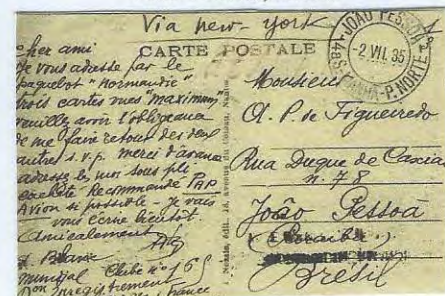 Via new-york
CARTE POSTALE
cher ami
je vous adresse par le
paquebot "normandie"
trois cartes vues "maximum"
veuillez avoir l'obligeance
de me faire retour des deux
autres s.v.p. merci d'avance
adressez les moi sous pli
cacheté Recommandé PAR
Avion si possible - je vais
vous écrire bientôt.
amicalement
Blanc
mundial Clube nº 168
enregistrement
france
JOÃO PESSOA
-2 VII. 35
P. NORTE
Monsieur
A. P. de Figueiredo
Rua Duque de Caxias
n. 78
João Pessoa
Brésil